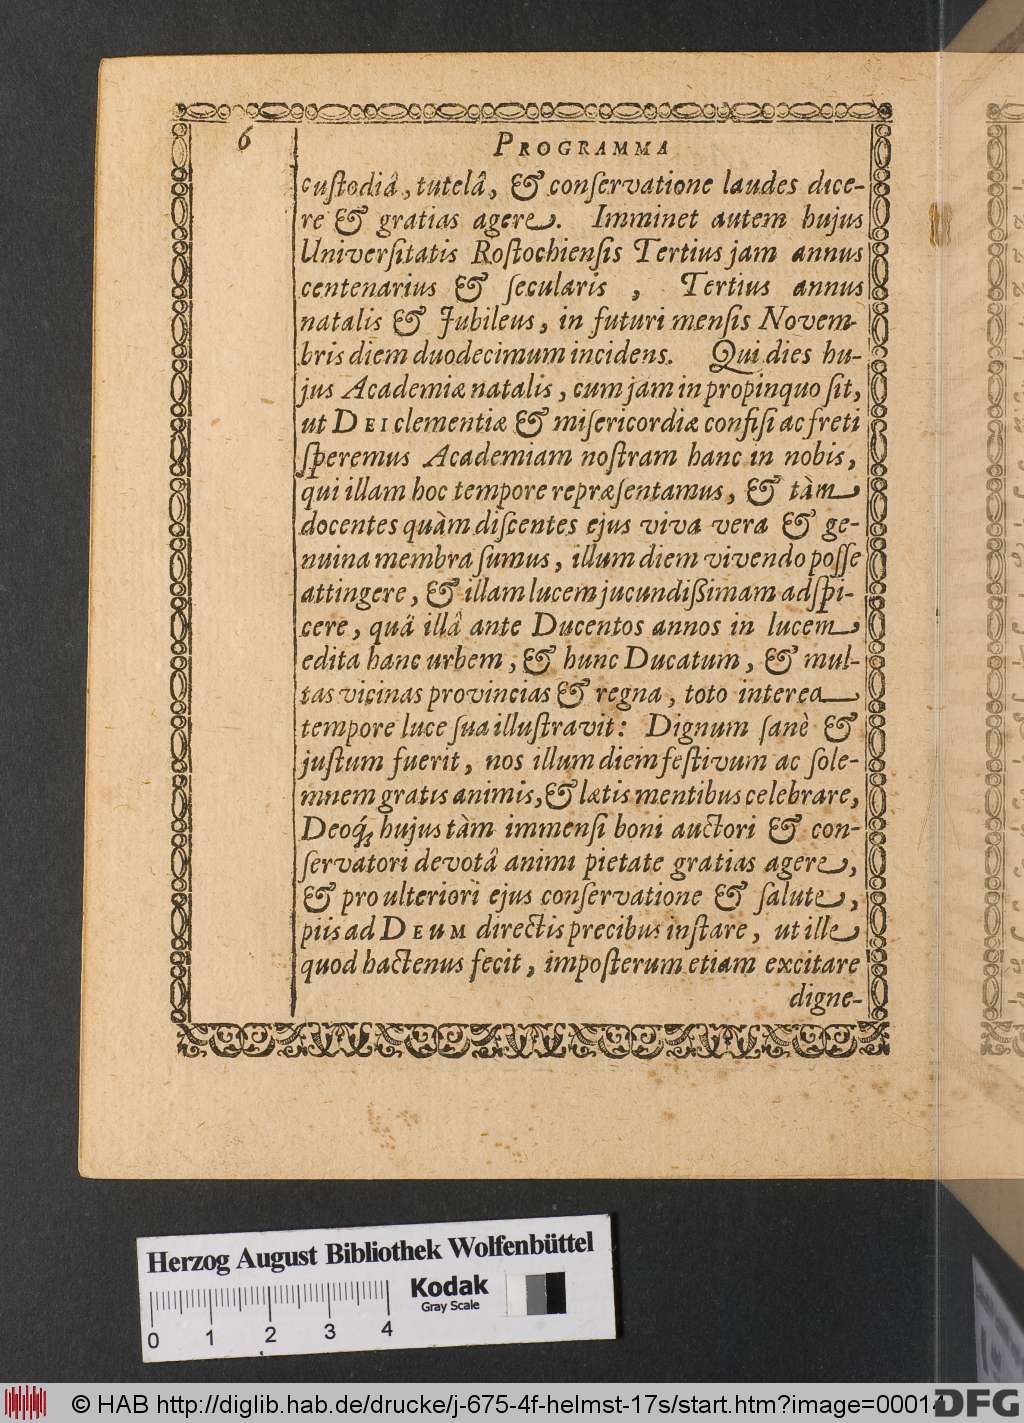 6
PROGRAMMA
custodiâ, tutelâ, & conservatione laudes dice-
re & gratias agere. Imminet autem hujus
Universitatis Rostochiensis Tertius jam annus
centenarius & secularis, Tertius annus
natalis & Jubileus, in futuri mensis Novem-
bris diem duodecimum incidens. Qui dies hu-
jus Academiæ natalis, cum jam in propinquo sit,
ut DEI clementiæ & misericordiæ confisi ac freti
speremus Academiam nostram hanc in nobis,
qui illam hoc tempore repræsentamus, & tàm
docentes quàm discentes ejus viva vera & ge-
nuina membra sumus, illum diem vivendo posse
attingere, & illam lucem jucundißimam adspi-
cere, quâ illâ ante Ducentos annos in lucem
edita hanc urbem, & hunc Ducatum, & mul-
tas vicinas provincias & regna, toto interea
tempore luce sua illustravit: Dignum sanè &
justum fuerit, nos illum diem festivum ac sole-
mnem gratis animis, & lætis mentibus celebrare,
Deoq́; hujus tàm immensi boni auctori & con-
servatori devotâ animi pietate gratias agere,
& pro ulteriori ejus conservatione & salute,
piis ad DEUM directis precibus instare, ut ille
quod hactenus fecit, imposterum etiam excitare
digne-
Herzog August Bibliothek Wolfenbüttel
Kodak
Gray Scale
0 1 2 3 4
© HAB http://diglib.hab.de/drucke/j-675-4f-helmst-17s/start.htm?image=00014
DFG